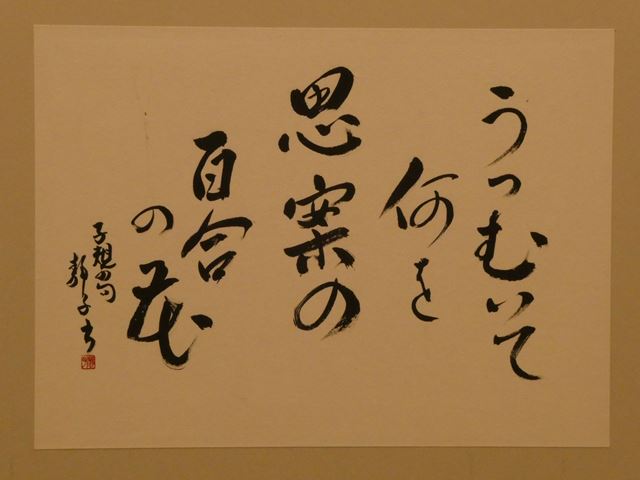 うつむいて
何を
思案の
百合
の花
子規の句
静子書